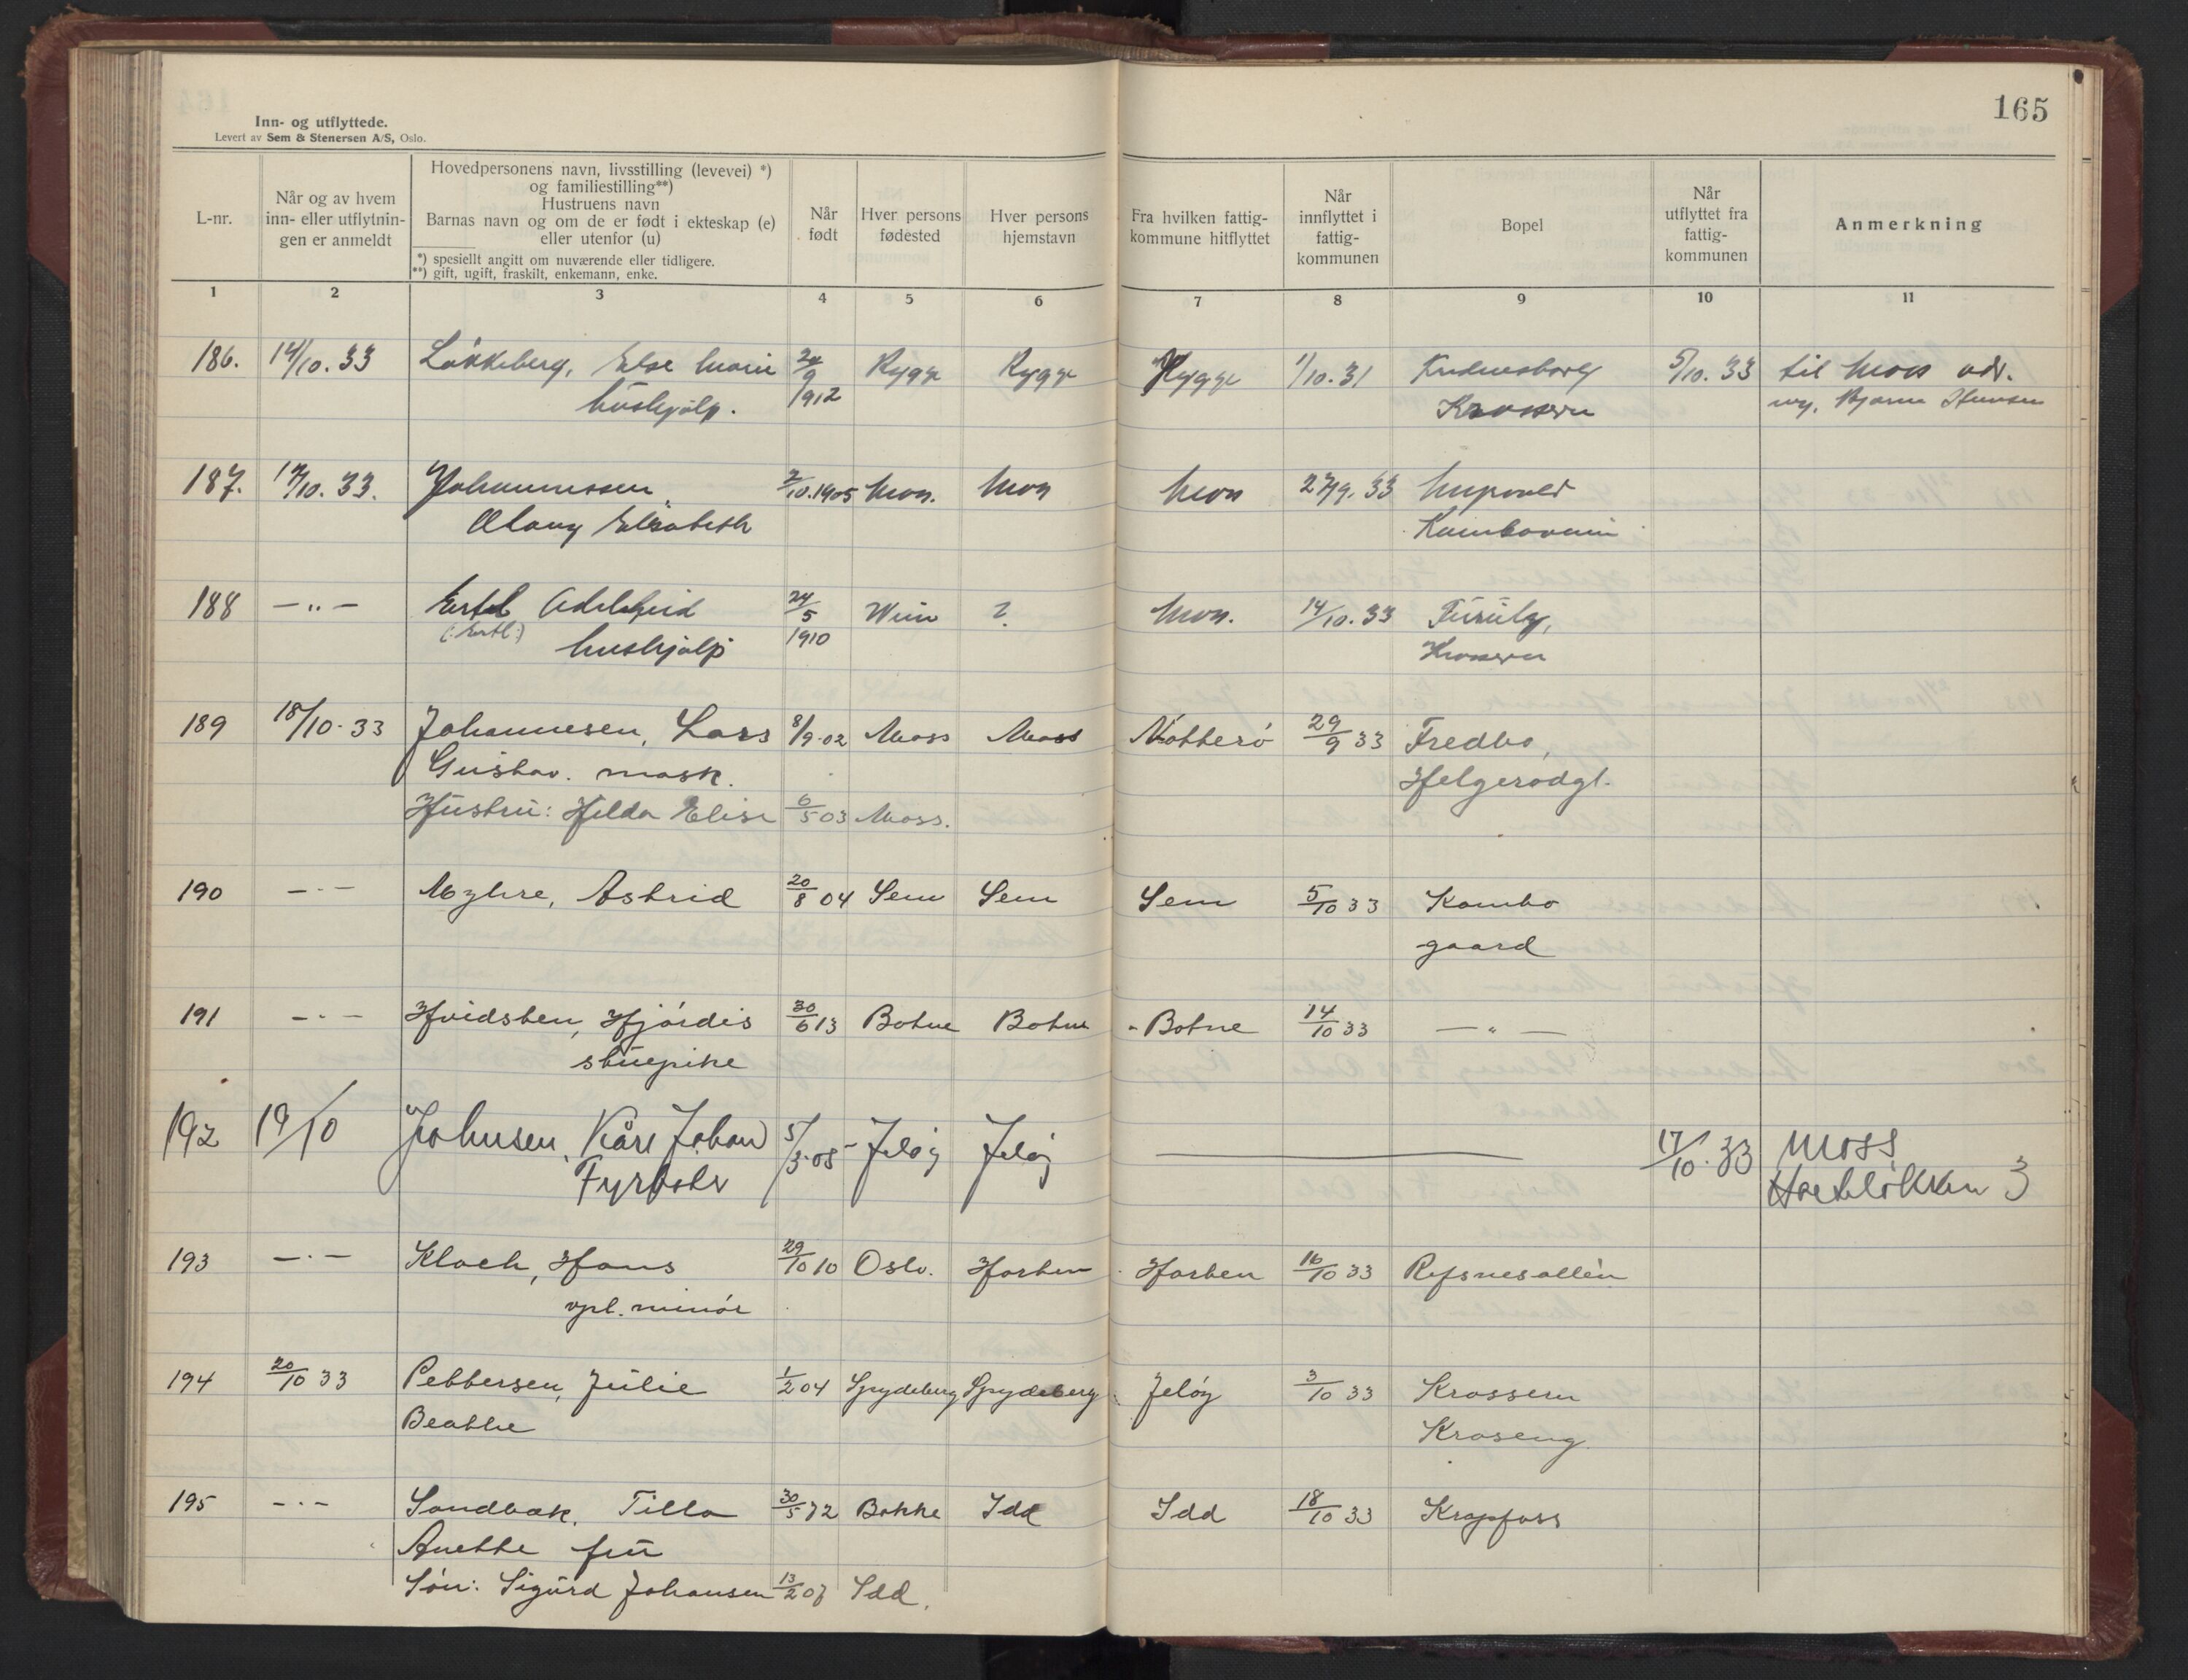 165
Inn- og utflyttede.
Levert av Sem & Stenersen A/S, Oslo.
L-nr.
Når og av hvem
inn- eller utflytnin-
gen er anmeldt
Hovedpersonens navn, livsstilling (levevei) *)
og familiestilling**)
Hustruens navn
Barnas navn og om de er født i ekteskap (e)
eller utenfor (u)
*) spesiellt angitt om nuværende eller tidligere.
**) gift, ugift, fraskilt, enkemann, enke.
Når
født
Hver persons
fødested
Hver persons
hjemstavn
Fra hvilken fattig-
kommune hitflyttet
Når
innflyttet i
fattig-
kommunen
Bopel
Når
utflyttet fra
fattig-
kommunen
Anmerkning
1 2 3 4 5 6 7 8 9 10 11
186. 14/10. 33 Løkkeberg, Else Marie 24/9 Rygge Rygge Rygge 1/10. 31 5/10. 33 til Moss
hushjelp. 1912 Krossern Bjarne Hansen
187. 17/10. 33. Johannessen, 2/10.1905 Moss. Moss Moss 27/9. 33
Elisabeth
188 — „ — Ertl Adelheid 24/5 Wien ? Moss. 14/10. 33 Furuly,
(: Ertl :) hushjelp 1910 Krossern
189 18/10. 33 Johannesen, Lars 8/9.02 Moss Moss Nøtterø 29/9 33 Fredbo,
Gustav. mask. Helgerødgt.
Hustru: Hilda Elise 6/5 03 Moss.
190 — „ — Myhre, Astrid 20/8 04 Sem Sem Sem 5/10 33 Kambo
gaard
191 — „ — Hvidsten, Hjørdis 30/6 13 Botne Botne Botne 14/10 33 — „ —
stuepike
192 19/10 Johnsen, Kåre Johan 5/3.08 Jeløy Jeløy — 17/10. 33 Moss
Fyrbøter 3
193 — „ — Kloch, Hans 29/10 10 Oslo. Horten Horten 16/10 33 Refsnesalleen
vpl. minør
194 20/10 33 Pettersen, Julie 1/2 04 Spydeberg Spydeberg Jeløy 3/10 33 Krossern
Beathe Kroseng
195 — „ — Sandbæk, Tilla 30/5 72 Bakke Idd Idd 18/10 33 Krapfoss
Anette fru
Søn: Sigurd Johansen 13/2 07 Idd.